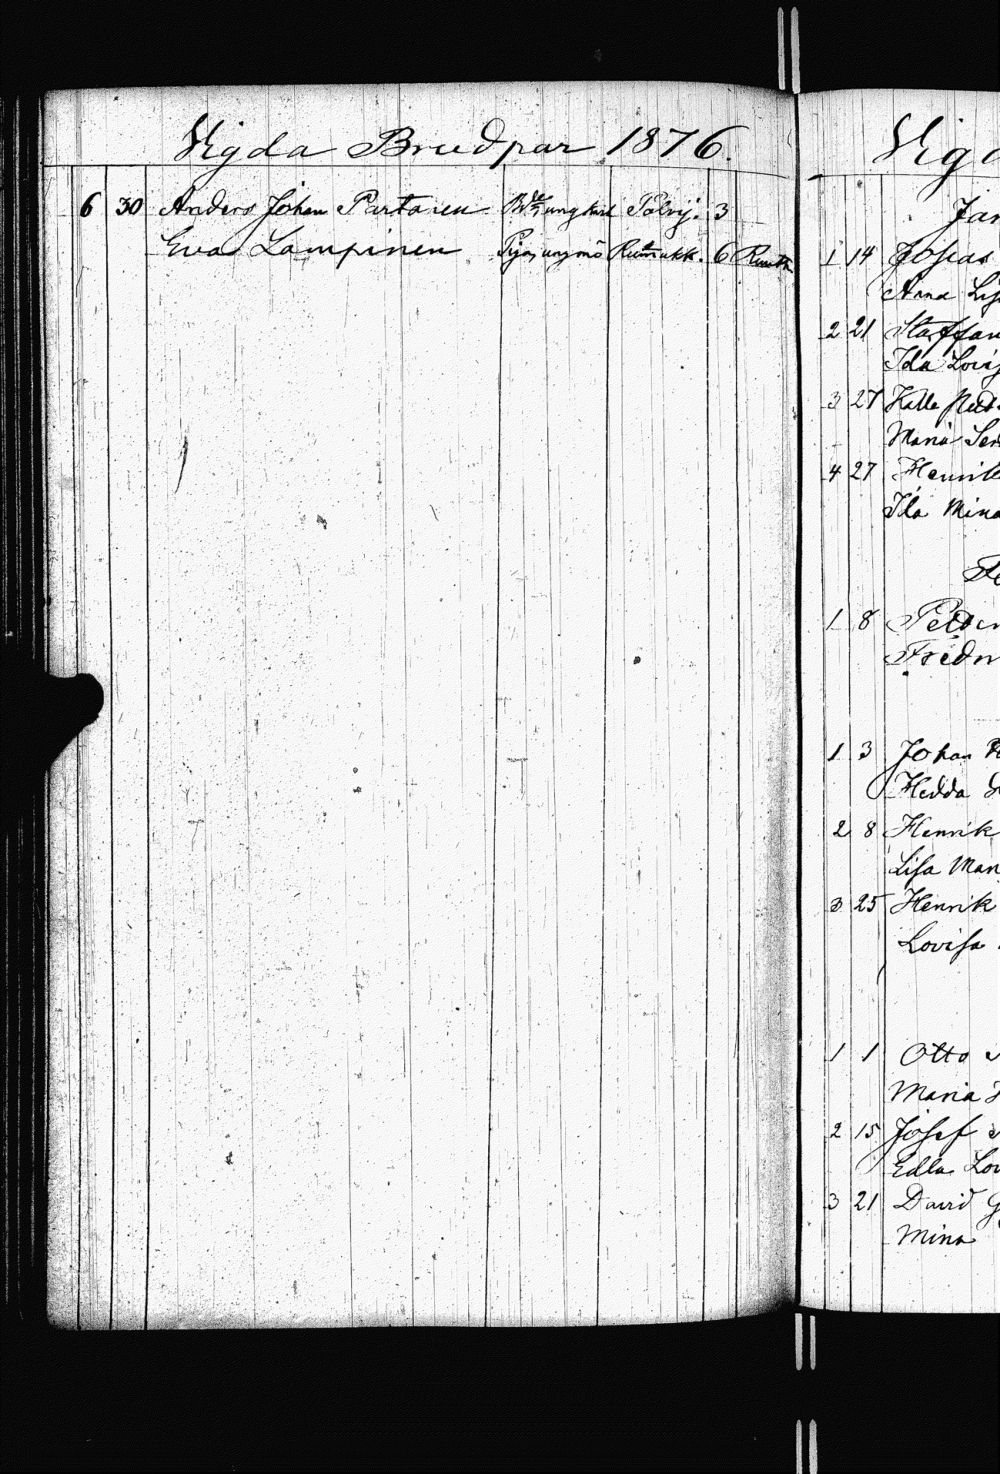 Vigda Brudpar 1876.
6 30 Anders Johan Partanen ungkarl Pölvij. 3
Eva Lampinen Pig. ungmö 6
Vigd
Jan
1 14 Josias
Anna Lis
2 21 Staffan
Ida Lovis
3 27 Kalle
Maria
4 27 Henrik
Ida Mina
Fe
1 8 Petter
Fredr
1 3 Johan
Hedda
2 8 Henrik
Lisa Mar
3 25 Henrik
Lovisa
1 1 Otto
Maria
2 15 Josef
Edla Lov
3 21 David
Mina